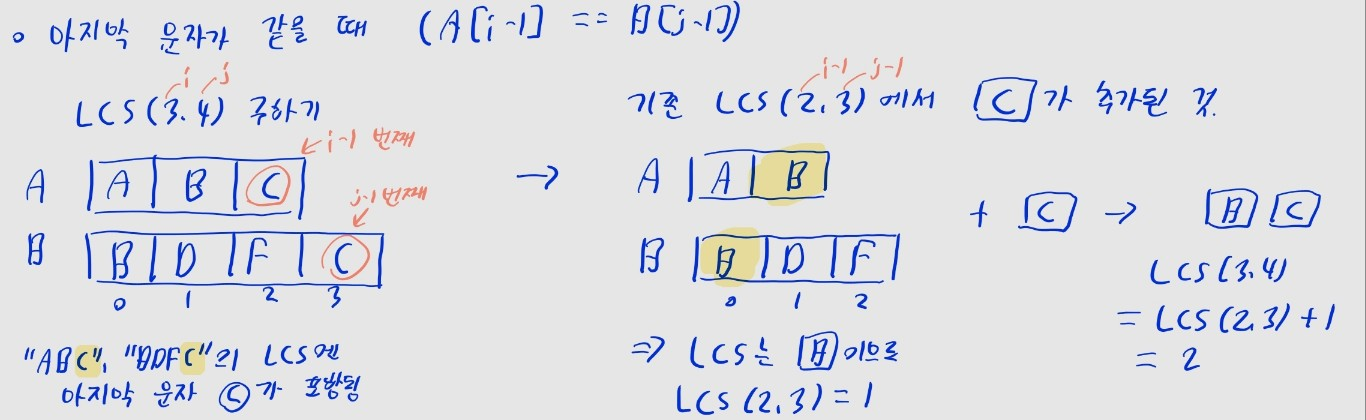 ◦ 마지막 문자가 같을 때 (A[i-1] == B[j-1])
i j
LCS(3.4) 구하기
i-1 번째
A A B C
j-1 번째
B B D F C
0 1 2 3
"ABC", "BDFC"의 LCS엔
마지막 문자 C가 포함됨
i-1 j-1
기존 LCS(2.3)에서 C가 추가된 것.
→
A A B
B B D F
0 1 2
⇒ LCS는 B이므로
LCS(2.3) = 1
+ C → B C
LCS(3.4)
= LCS(2.3)+1
= 2